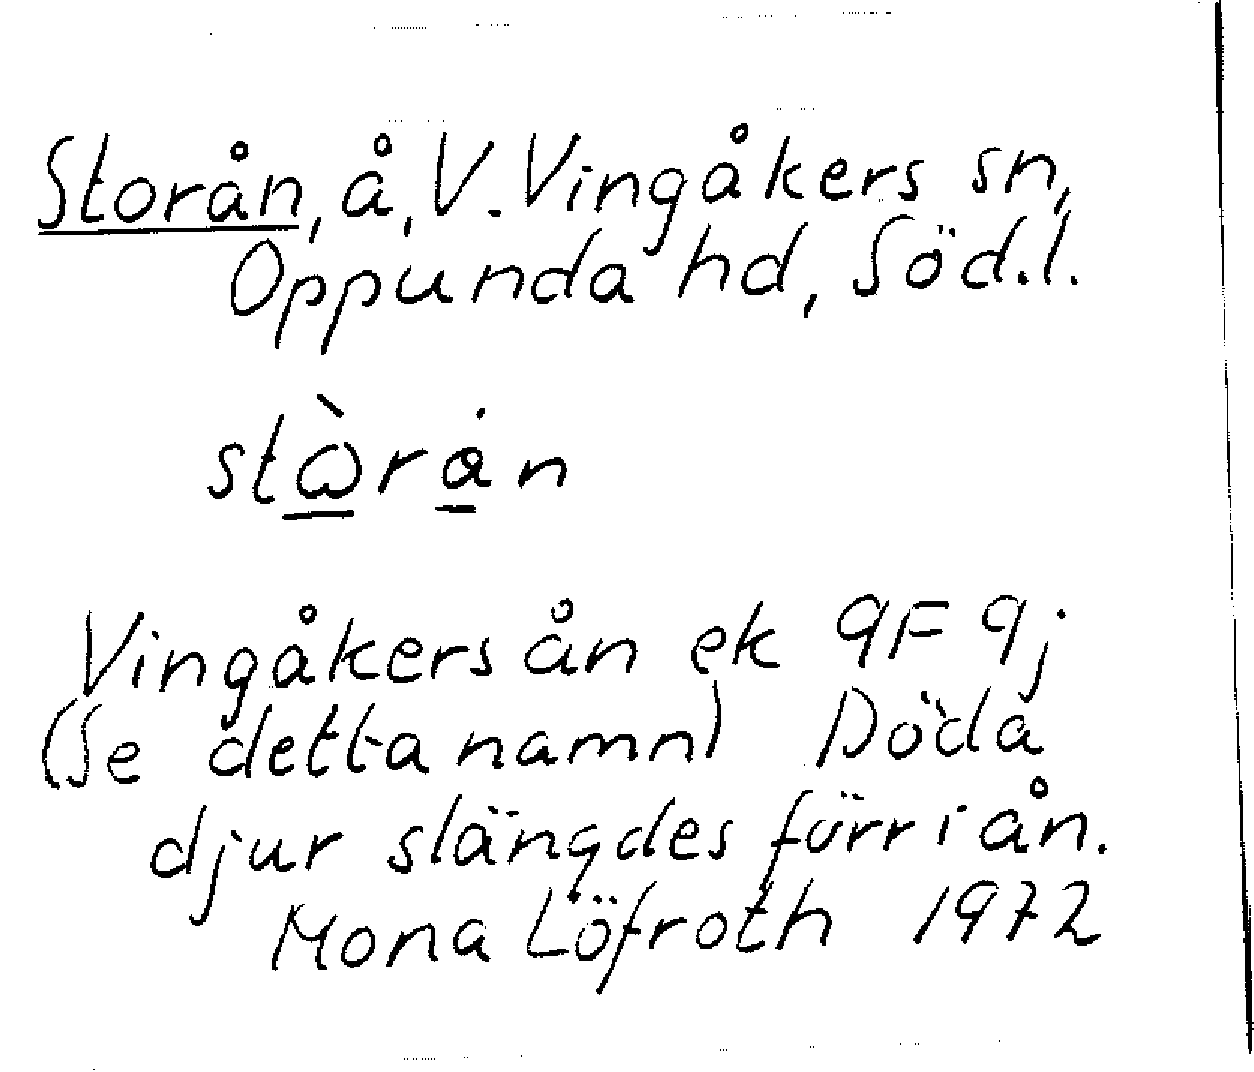 Storån, å, V. Vingåkers sn,
Oppunda hd, Söd.l.
stὼrȧn
Vingåkersån ek 9F 9j
(Se detta namn) Döda
djur slängdes förr i ån.
Mona Löfroth 1972